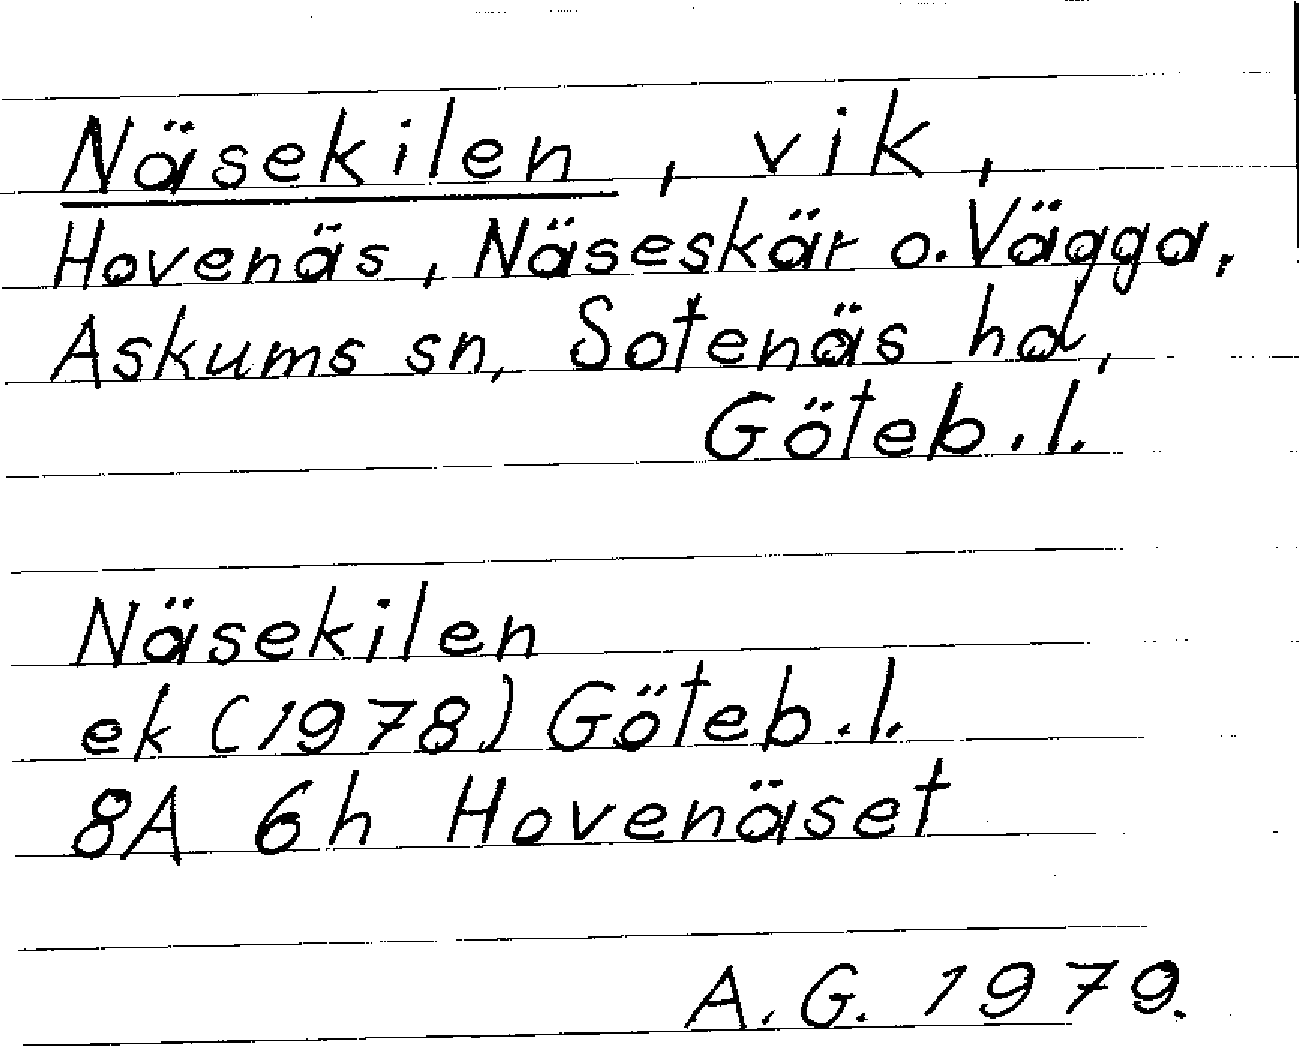 Näsekilen, vik,
Hovenäs, Näseskär o. Vägga,
Askums sn, Sotenäs hd,
Göteb. l.
Näsekilen
ek (1978) Göteb. l.
8A 6h Hovenäset
A. G. 1979.